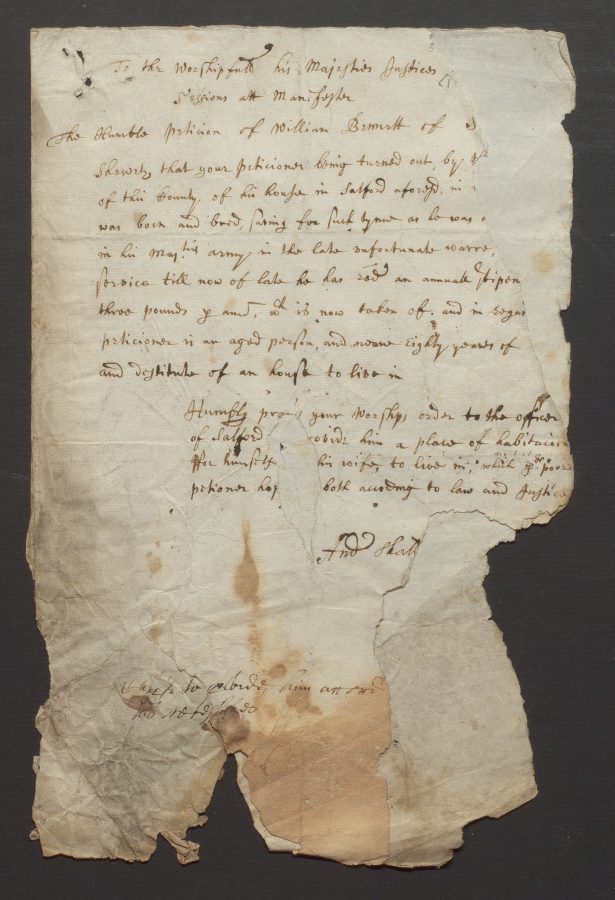 To the Worshipfull his Majesties Justices
Sessions att Manchester
The Humble peticion of William Bennett of S
Sheweth that your peticioner being turned out by
of this County, of his house in Salford aforesd, in
was born and bred, saving for such tyme as he was
in his Majties army in the late unfortunate warre,
service till now of late he has recd an annuall stipen
three pounds p annu, wch is now taken of. and in regar
peticioner is an aged person, and neare Eighty yeares of
and destitute of an house to live in
Humbly prays your Worships order to the officer
of Salford ovide him a place of habitacion
ffor himselfe his wife to live in, which yor poore
petioner hop both according to law and Justice
And shall
to him an